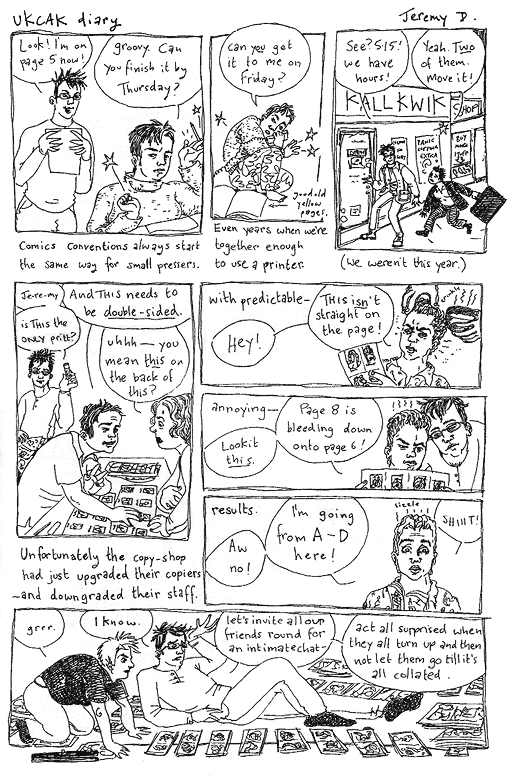 UKCAK diary
Jeremy D.
Look! I'm on
page 5 now!
groovy. Can
you finish it by
Thursday?
Comics conventions always start
the same way for small pressers.
can you get
it to me on
Friday?
good old
yellow
pages.
Even years when we're
together enough
to use a printer.
See? 5:15!
we have
hours!
Yeah. Two
of them.
move it!
KALL KWIK
SHOP
(We weren't this year.)
Je-re-my
is THIS the
ONLY pritt?
And THIS needs to
be double-sided.
uhhh — you
mean this on
the back of
this?
Unfortunately the copy-shop
had just upgraded their copiers
-and downgraded their staff.
with predictable-
Hey!
This isn't
straight on
the page!
annoying-
Lookit
this.
Page 8 is
bleeding down
onto page 6!
results.
Aw
no!
I'm going
from A-D
here!
sizzle
SHIIIT!
grrr.
I know.
let's invite all our
friends round for
an intimate chat-
act all surprised when
they all turn up and then
not let them go till it's
all collated.